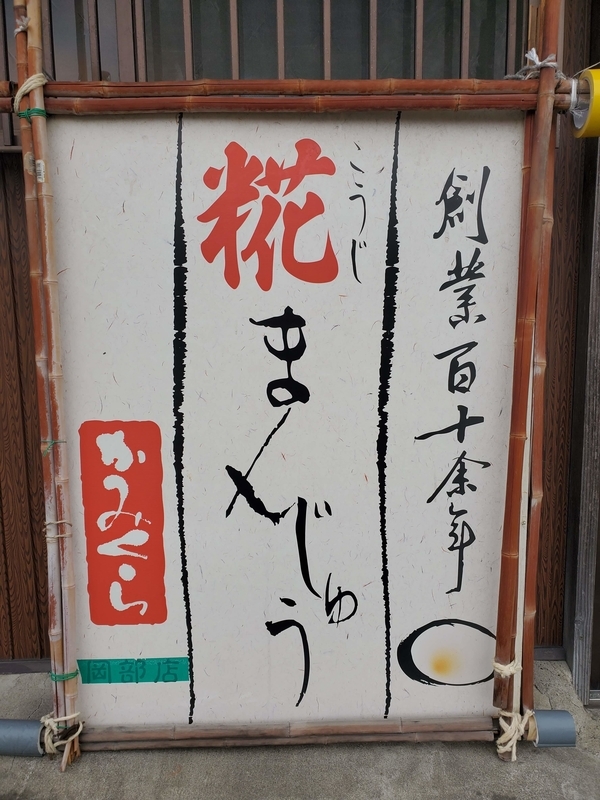 創業百十余年
こうじ
糀まんじゅう
かみくら
岡部店